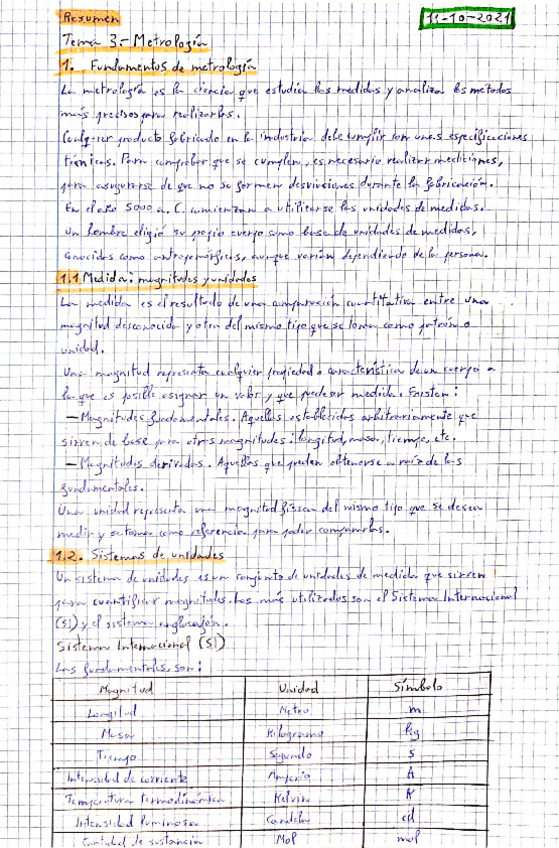 Resumen
11-10-2021
Tema 3.- Metrología
1. Fundamentos de metrología
La metrología es la ciencia que estudia las medidas y analiza los métodos
más precisos para realizarlas.
Cualquier producto fabricado en la industria debe cumplir con unas especificaciones
técnicas. Para comprobar que se cumplen, es necesario realizar mediciones,
para asegurarse de que no se formen desviaciones durante la fabricación.
En el año 5000 a. C. comienzan a utilizarse las unidades de medidas.
Un hombre eligió su propio cuerpo como base de unidades de medidas,
conocidas como antropomórficas, aunque varían dependiendo de la persona.
1.1 Medida: magnitudes y unidades
La medida es el resultado de una comparación cuantitativa entre una
magnitud desconocida y otra del mismo tipo que se toma como patrón o
unidad.
Una magnitud representa cualquier propiedad o característica de un cuerpo a
la que es posible asignar un valor y que puede ser medida. Existen:
- Magnitudes fundamentales. Aquellas establecidas arbitrariamente que
sirven de base para otras magnitudes: longitud, masa, tiempo, etc.
- Magnitudes derivadas. Aquellas que pueden obtenerse a raíz de las
fundamentales.
Una unidad representa una magnitud física del mismo tipo que se desea
medir y se toma como referencia para poder compararlas.
1.2. Sistemas de unidades
Un sistema de unidades es un conjunto de unidades de medida que sirven
para cuantificar magnitudes. Los más utilizados son el Sistema Internacional
(SI) y el sistema anglosajón.
Sistema Internacional (SI)
Las fundamentales son:
Magnitud Unidad Símbolo
Longitud Metro m
Masa Kilogramo Kg
Tiempo Segundo s
Intensidad de corriente Amperio A
Temperatura termodinámica Kelvin K
Intensidad luminosa Candela cd
Cantidad de sustancia Mol mol